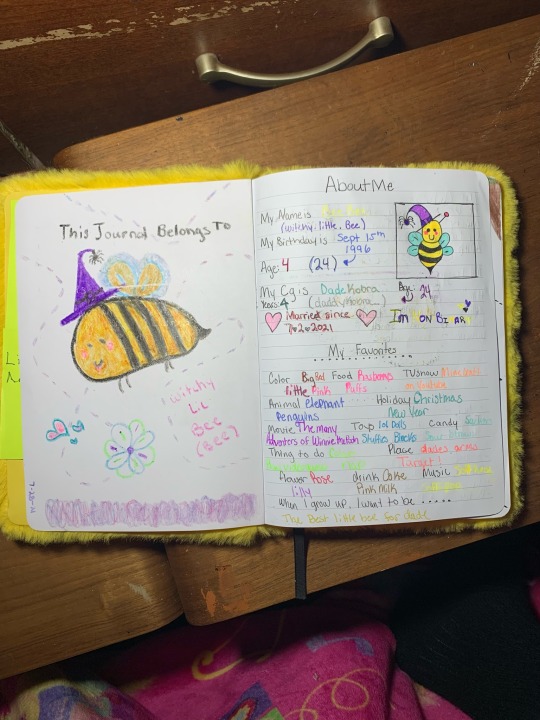 This Journal Belongs To
witchy
Lil
Bee
(Bee)
About Me
My Name is
(witchy.little.Bee)
My Birthday is Sept 15th
1996
Age: 4 (24)
My Cg is Dade Kobra
Age: 24
Years: 4 (daddy.Kobra...)
Married since
I'm NON BINARY
My Favorites
Color Big Red Food TV show
little Pink Puffs
Animal elephant Holiday Christmas
Penguins New Year
Movie The many Toys Lol Dolls Candy
Adventures of Winnie the Pooh Stuffies Blocks
Thing to do Place dades arms
Target!
Flower Rose drink Coke Music
lilly Pink Milk
When I grow up, I want to be .....
The Best little bee for dade